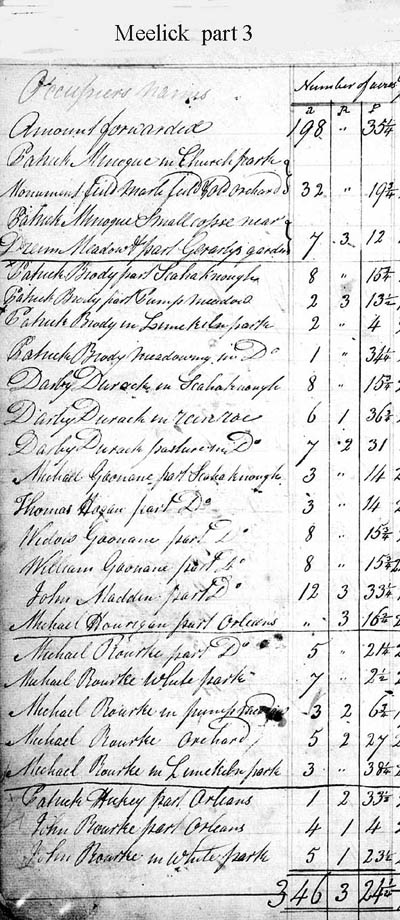 Meelick part 3
Occupiers names Number of acres
a r p
Amount forwarded 198 " 35¼
Patrick Minogue in Church park
Monument field Mark field & Old Orchard 32 " 19
Patrick Minogue Small copse near
Dreenn Meadow & part Gerartys garden 7 3 12
Patrick Brody part Scahaknough 8 " 15
Patrick Brody part Pump meadow 2 3 13½
Patrick Brody in Limekiln park 2 " 4
Patrick Brody meadowing in Do 1 " 34
Darby Durack in Scahaknough 8 " 15
Darby Durack in 6 1 36
Darby Durack pasture in Do 7 2 31
Michael Goonane part Scahaknough 3 " 14
Thomas Hogan part Do 3 " 14
Widow Goonane part Do 8 " 15
William Goonane part Do 8 " 15
John Madden part Do 12 3 33
Michael Hourigan part Orleans " 3 16
Michael Rourke part Do 5 " 21
Michael Rourke White park 7 " 2½
Michael Rourke in pump 3 2 6
Michael Rourke Orchard 5 2 27
Michael Rourke in Limekiln park 3 " 38
Patrick Hickey part Orleans 1 2 33
John Rourke part Orleans 4 1 4
John Rourke in White park 5 1 23
346 3 24